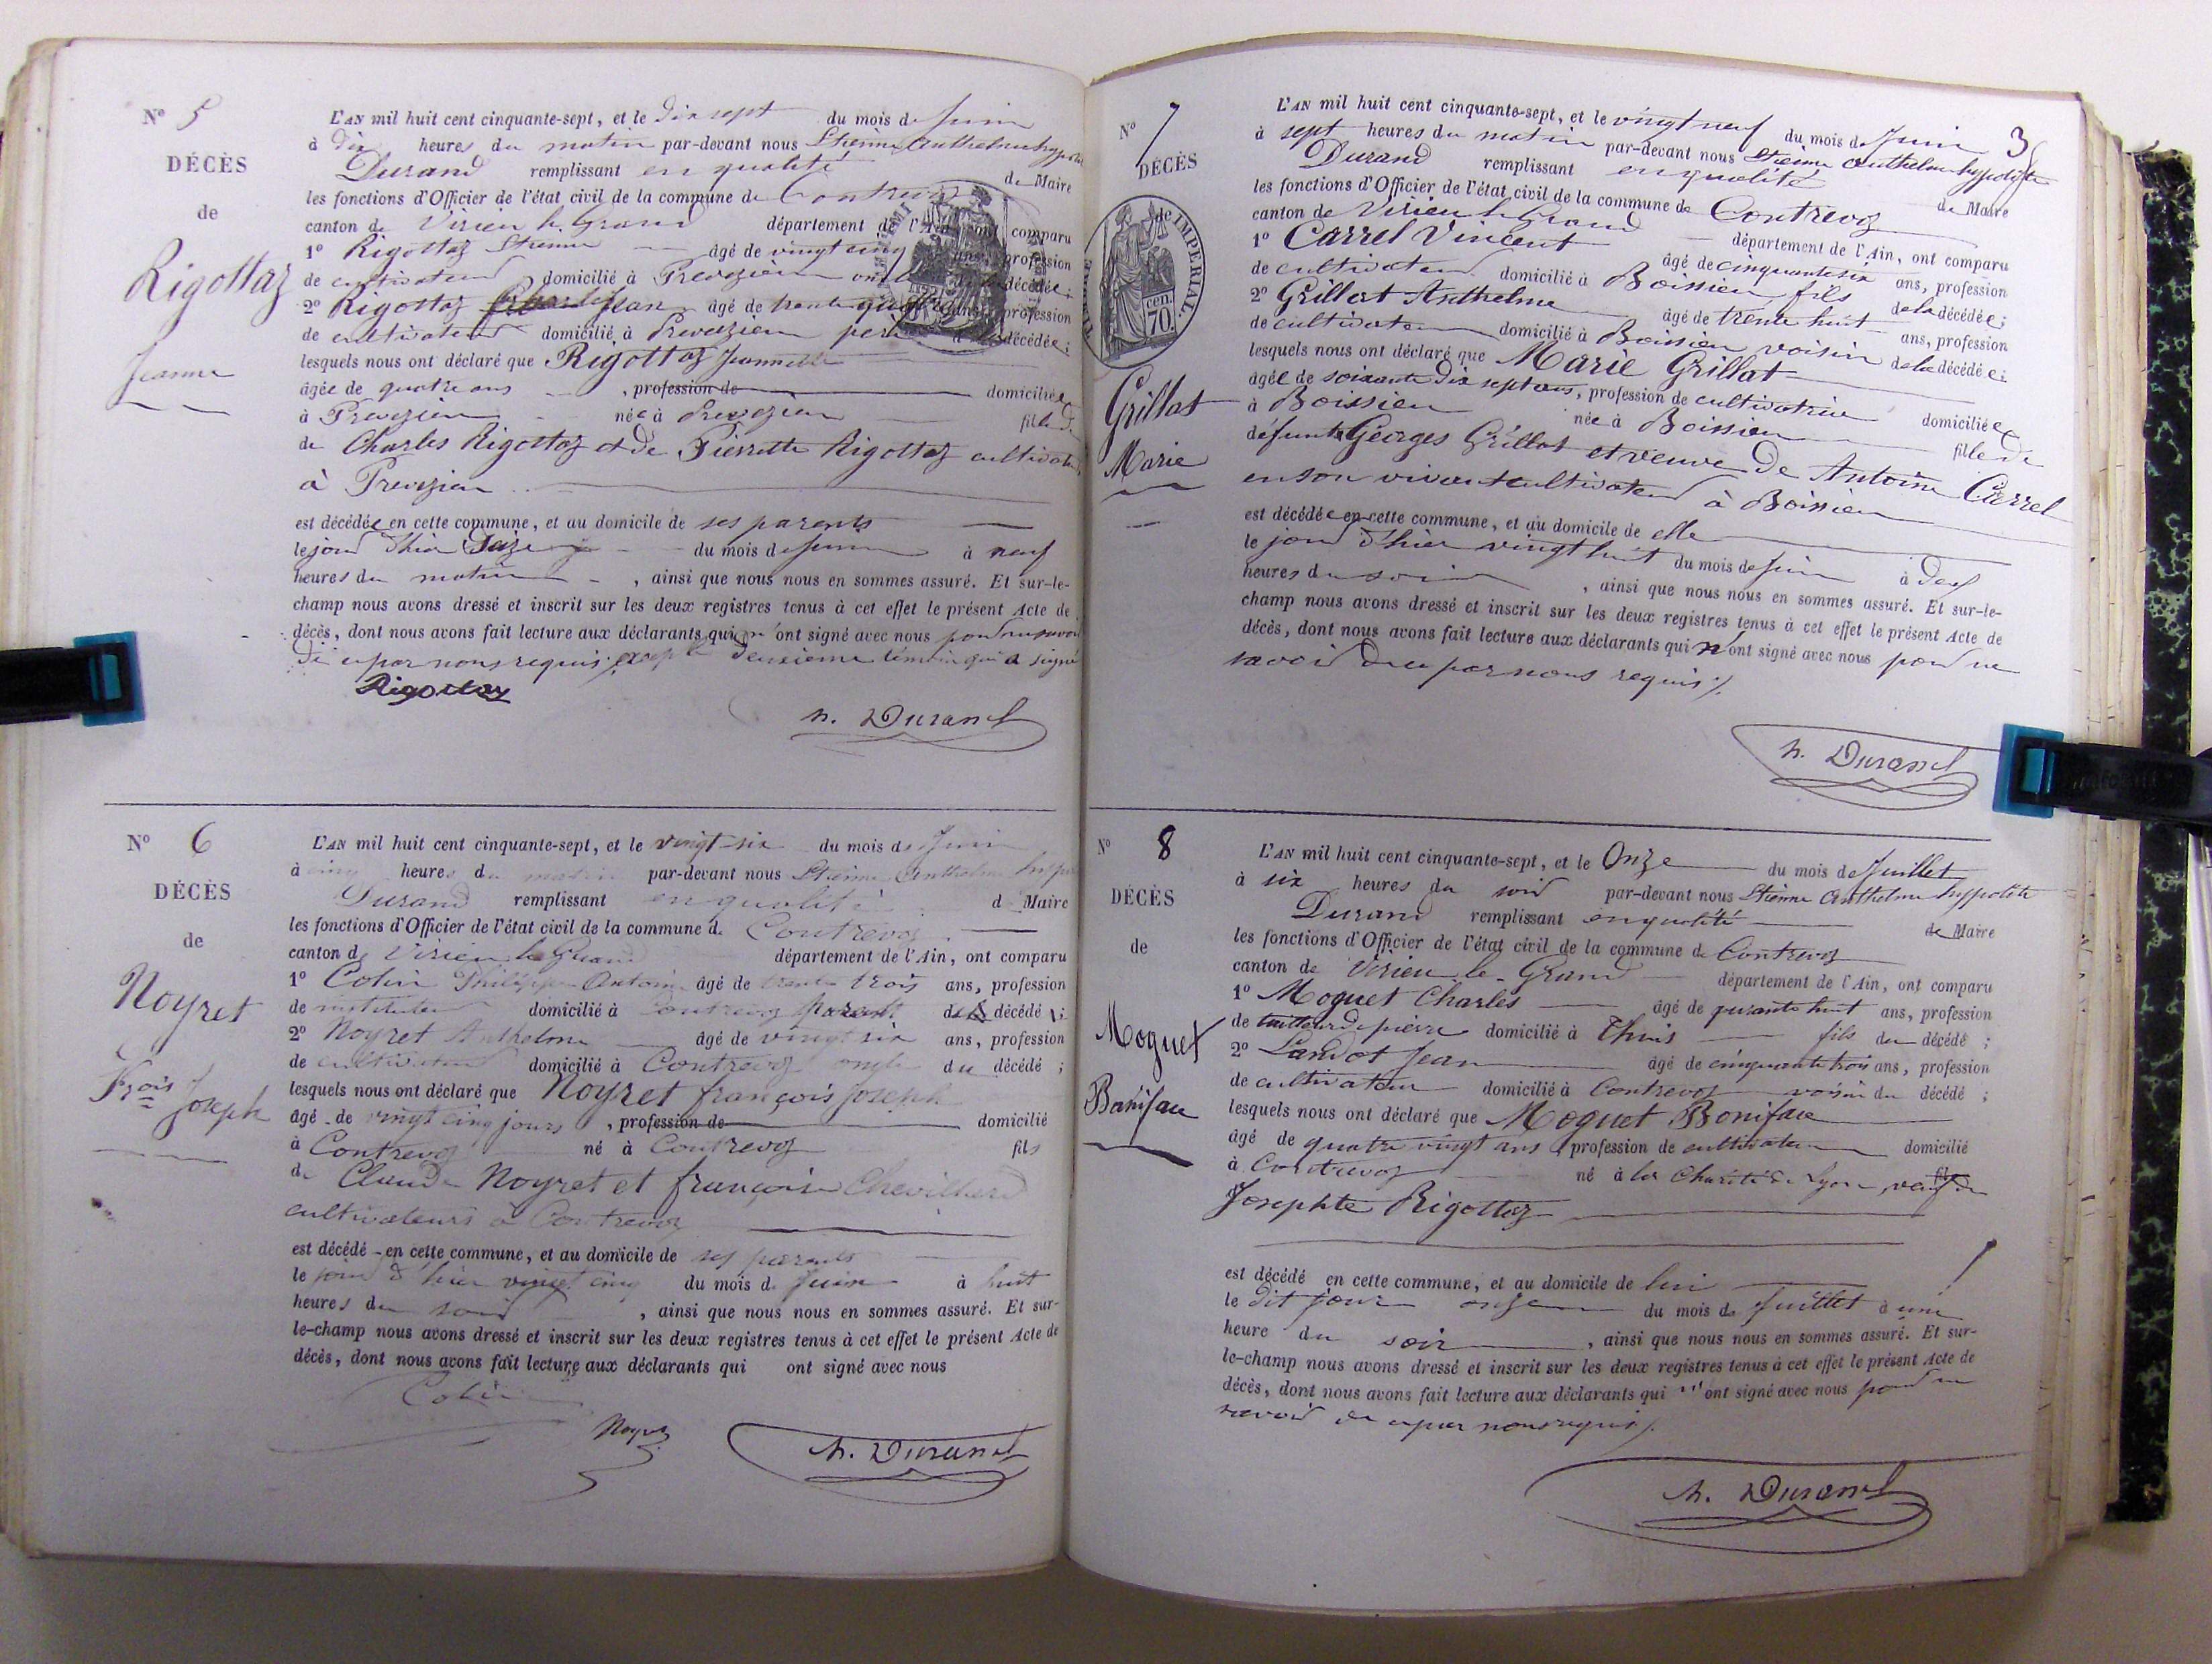 Nº 5
DÉCÈS
de
Rigottaz
Jeanne
L'AN mil huit cent cinquante-sept, et le dix sept du mois de juin
à dix heures du matin par-devant nous Etienne Anthelme hyppolite
Durand remplissant en qualité de Maire
les fonctions d'Officier de l'état civil de la commune de Contrevoz
canton de Virieu le Grand département de l'Ain, ont comparu
1º Rigottaz Etienne âgé de vingt cinq ans, profession
de cultivateur domicilié à Prevezieu oncle de la décédée;
2º Rigottaz Charles Jean âgé de trente quatre ans, profession
de cultivateur domicilié à Prevezieu père de la décédée;
lesquels nous ont déclaré que Rigottaz Jeannette
âgée de quatre ans , profession de domiciliée
à Prevezieu née à Prevezieu fille de
de Charles Rigottaz et de Pierrette Rigottaz cultivateurs
à Prevezieu
est décédée en cette commune, et au domicile de ses parents
le jour d'hier Seize du mois de juin à neuf
heures du matin , ainsi que nous nous en sommes assuré. Et sur-le-
champ nous avons dressé et inscrit sur les deux registres tenus à cet effet le présent Acte de
décès, dont nous avons fait lecture aux déclarants qui n'ont signé avec nous pour ne savoir
de ce par nous requis excepté le deuxième témoin qui a signé
Rigottaz
h. Durand
Nº 6
DÉCÈS
de
Noyret
Frois
Joseph
L'AN mil huit cent cinquante-sept, et le vingt-six du mois de juin
à cinq heures du matin par-devant nous Etienne Anthelme hyppolite
Durand remplissant en qualité d Maire
les fonctions d'Officier de l'état civil de la commune de Contrevoz
canton de Virieu le Grand département de l'Ain, ont comparu
1º Colin Philippe Antoine âgé de trente trois ans, profession
de instituteur domicilié à Contrevoz parent du décédé;
2º Noyret Anthelme âgé de vingt six ans, profession
de cultivateur domicilié à Contrevoz oncle du décédé;
lesquels nous ont déclaré que Noyret françois joseph
âgé de vingt cinq jours , profession de domicilié
à Contrevoz né à Contrevoz fils
de Claude Noyret et françoise Chevillard
cultivateurs à Contrevoz
est décédé en cette commune, et au domicile de ses parents
le jour d'hier vingt cinq du mois de Juin à huit
heures du soir , ainsi que nous nous en sommes assuré. Et sur-
le-champ nous avons dressé et inscrit sur les deux registres tenus à cet effet le présent Acte de
décès, dont nous avons fait lecture aux déclarants qui ont signé avec nous
Colin
Noyret
h. Durand
3
Nº 7
DÉCÈS
de
IMPERIAL
70. cen.
Grillat
Marie
L'AN mil huit cent cinquante-sept, et le vingt neuf du mois de Juin
à sept heures du matin par-devant nous Etienne Anthelme hyppolite
Durand remplissant en qualité de Maire
les fonctions d'Officier de l'état civil de la commune de Contrevoz
canton de Virieu le Grand département de l'Ain, ont comparu
1º Carrel Vincent âgé de cinquante six ans, profession
de cultivateur domicilié à Boissieu fils de la décédée;
2º Grillat Anthelme âgé de trente huit ans, profession
de cultivateur domicilié à Boissieu voisin de la décédée;
lesquels nous ont déclaré que Marie Grillat
âgée de soixante dix sept ans, profession de cultivatrice domiciliée
à Boissieu née à Boissieu fille de
défunt Georges Grillat et veuve de Antoine Carrel
en son vivant cultivateur à Boissieu
est décédée en cette commune, et au domicile de elle
le jour d'hier vingt huit du mois de juin à deux
heures du soir , ainsi que nous nous en sommes assuré. Et sur-le-
champ nous avons dressé et inscrit sur les deux registres tenus à cet effet le présent Acte de
décès, dont nous avons fait lecture aux déclarants qui n'ont signé avec nous pour ne
savoir de ce par nous requis
h. Durand
Nº 8
DÉCÈS
de
Moquet
Boniface
L'AN mil huit cent cinquante-sept, et le Onze du mois de Juillet
à six heures du soir par-devant nous Etienne Anthelme hyppolite
Durand remplissant en qualité de Maire
les fonctions d'Officier de l'état civil de la commune de Contrevoz
canton de Virieu-le-Grand département de l'Ain, ont comparu
1º Moquet Charles âgé de quarante huit ans, profession
de tailleur de pierre domicilié à Thuis fils du décédé;
2º Landot Jean âgé de cinquante trois ans, profession
de cultivateur domicilié à Contrevoz voisin du décédé;
lesquels nous ont déclaré que Moquet Boniface
âgé de quatre vingt ans , profession de cultivateur domicilié
à Contrevoz né à la Charité de Lyon veuf de
Josephte Rigottaz
est décédé en cette commune, et au domicile de lui
le dit jour onze du mois de Juillet à une
heure du soir , ainsi que nous nous en sommes assuré. Et sur-
le-champ nous avons dressé et inscrit sur les deux registres tenus à cet effet le présent Acte de
décès, dont nous avons fait lecture aux déclarants qui n'ont signé avec nous pour ne
savoir de ce par nous requis
h. Durand